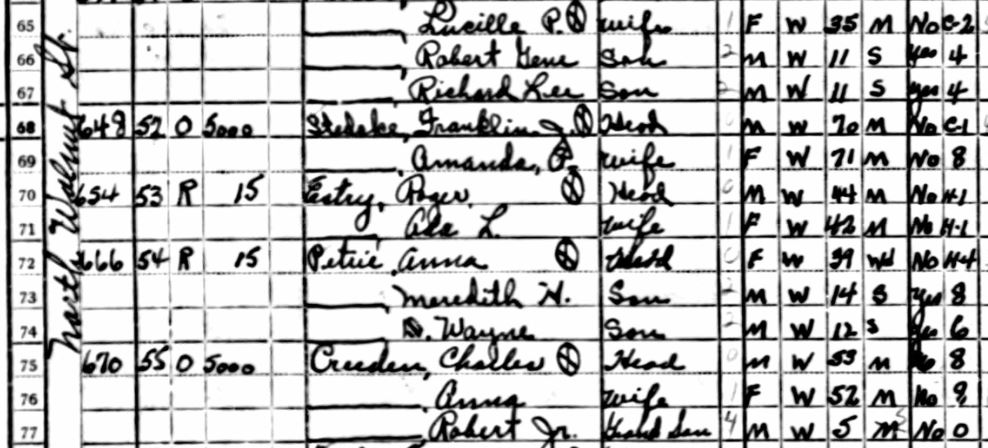 North Walnut St.
65 Lucille P. Ⓧ wife 1 F W 35 M No C-2
66 Robert Gene Son 2 M W 11 S yes 4
67 Richard Lee Son 2 M W 11 S yes 4
68 648 52 O 5000 Franklin J. Ⓧ Head 0 M W 70 M No C-1
69 Amanda, wife 1 F W 71 M No 8
70 654 53 R 15 Estry, Roger Ⓧ Head 0 M W 44 M No H-1
71 Ada L. wife 1 F W 42 M No H-1
72 666 54 R 15 Petrie Anna Ⓧ Head 0 F W 39 Wd No H-4
73 Meredith H. Son 2 M W 14 S yes 8
74 D. Wayne Son 2 M W 12 S yes 6
75 670 55 O 5000 Creeden, Charles Ⓧ Head 0 M W 53 M No 8
76 Anna wife 1 F W 52 M No 8
77 Robert Jr. Grand Son 4 M W 5 S No 0